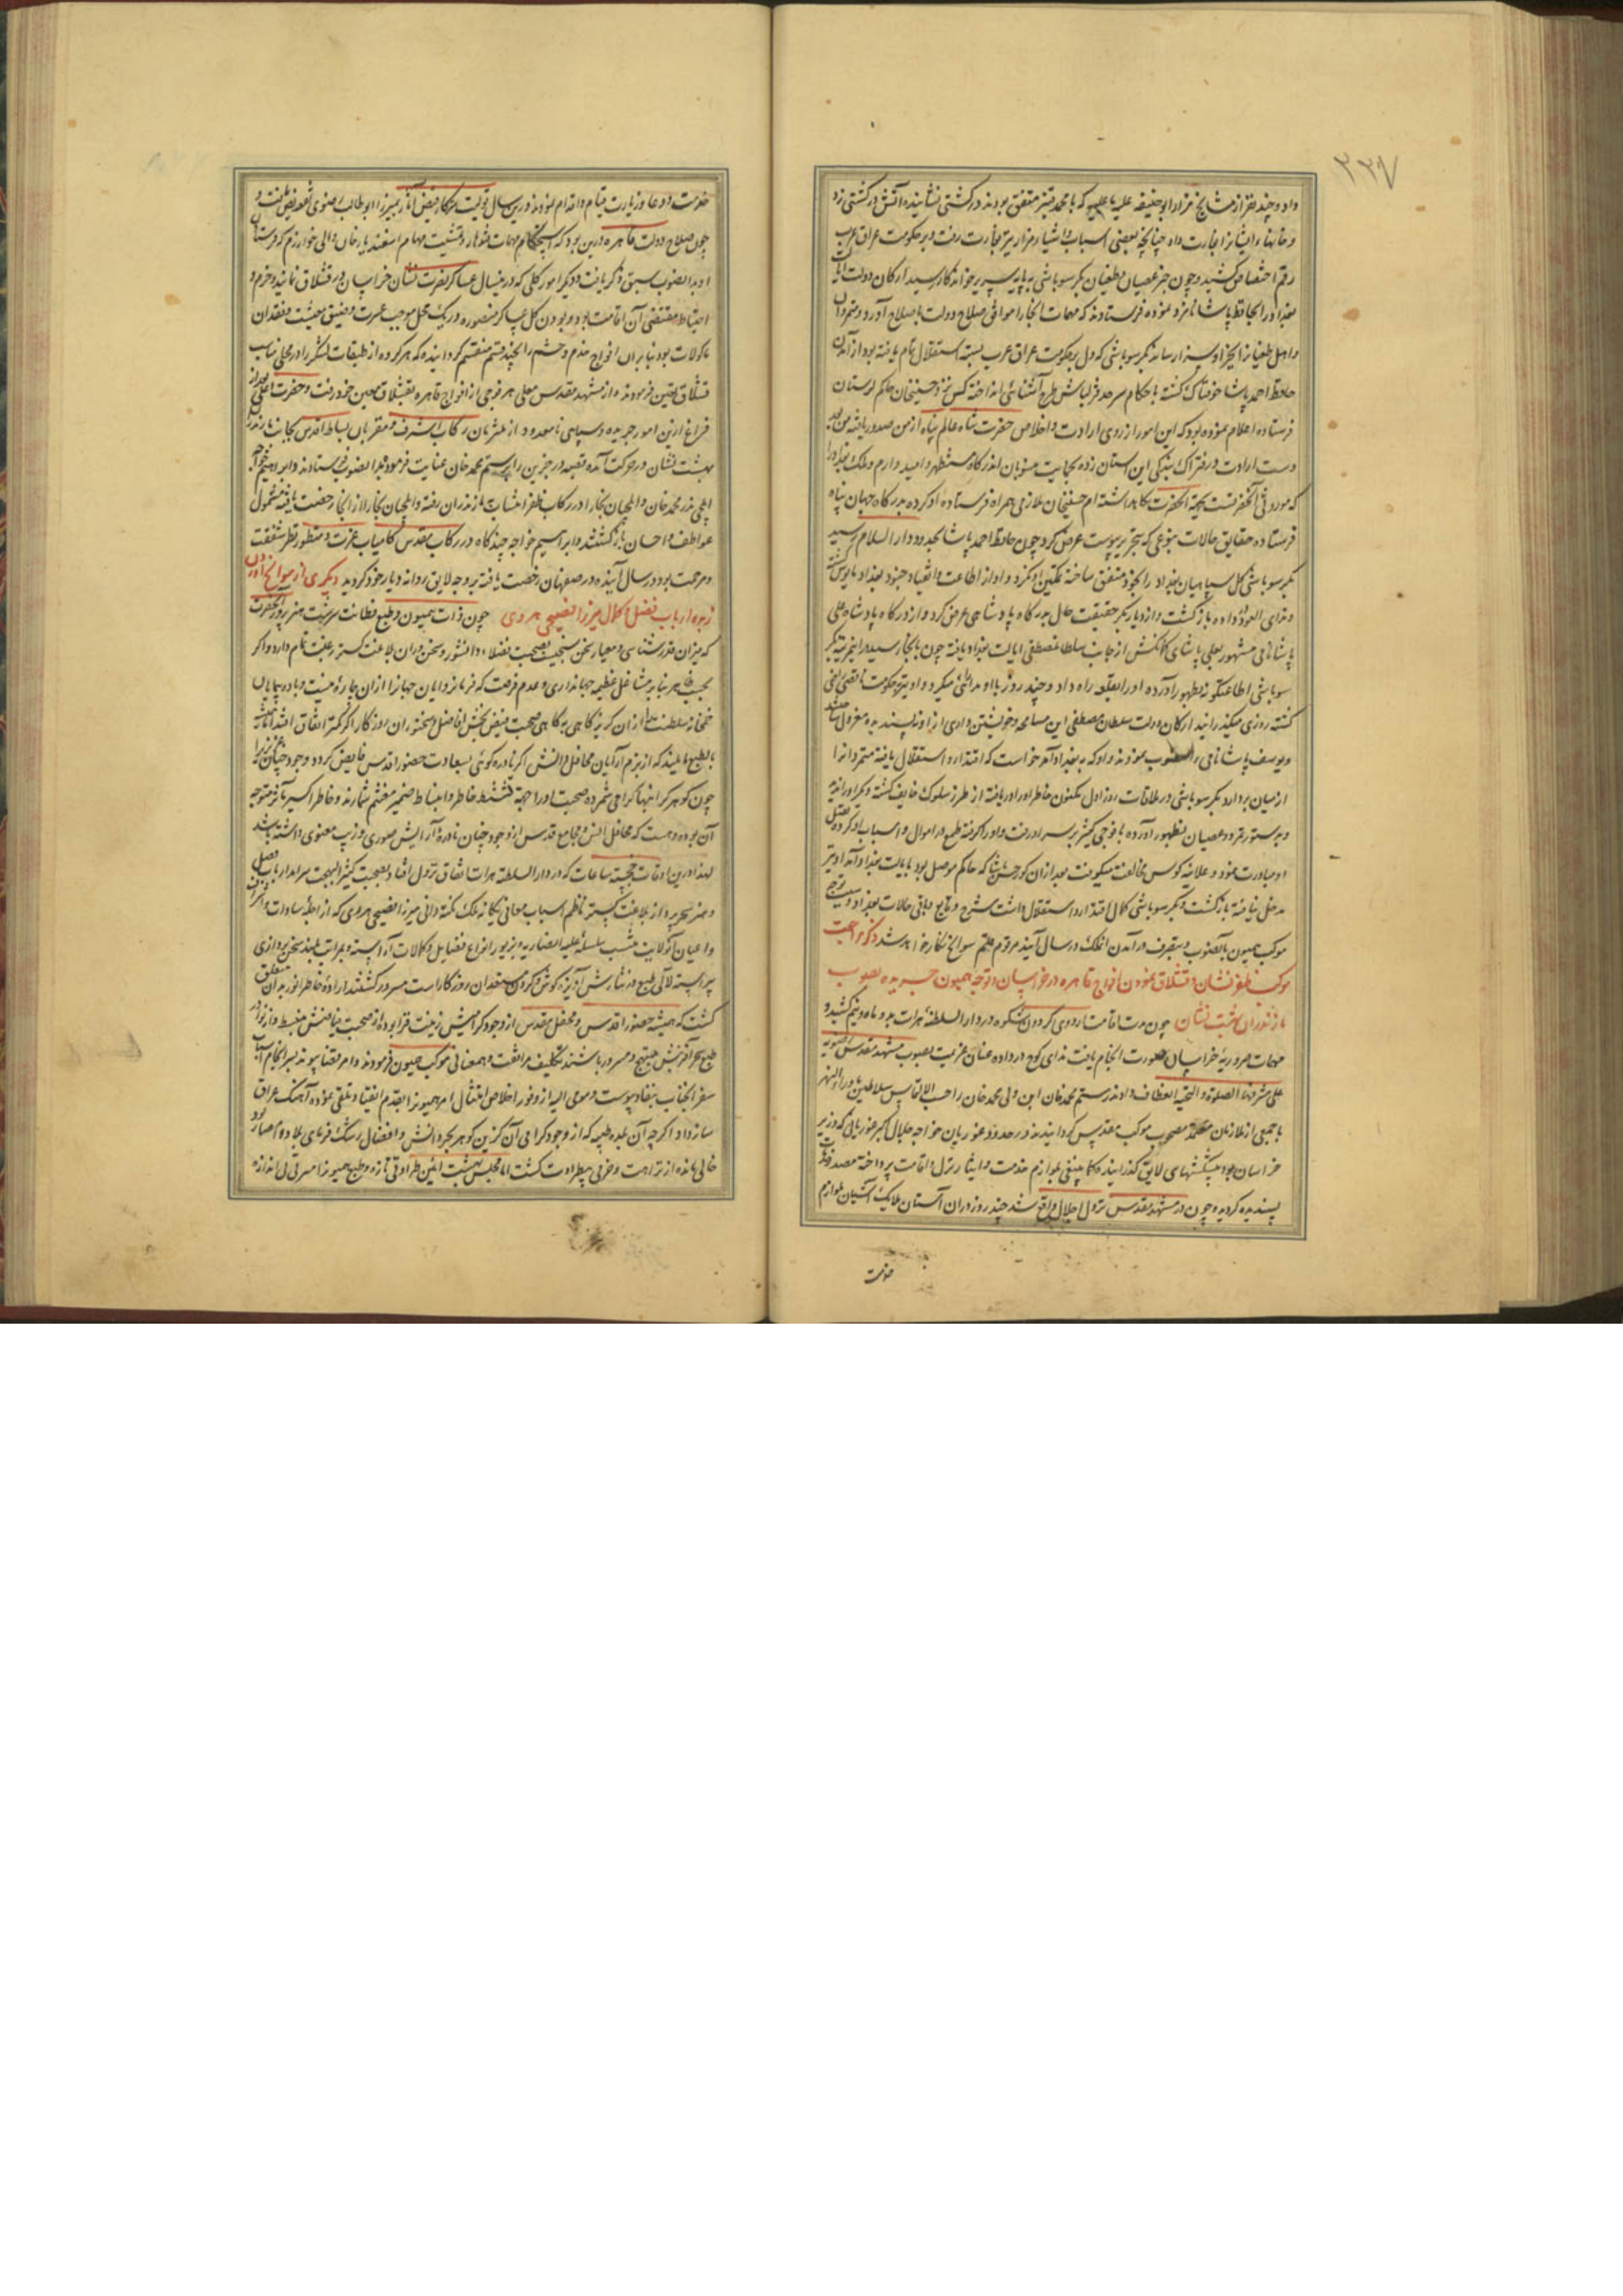 ۳۳۷
داد و چند نفر از مشایخ مزار ابو حنیفه علیه ما علیه که با محمد قنبر متفق بودند در کشتی نشانیده آتش در کشتی زد
و خانهاء ایشانرا بغارت داد چنانچه بعضی اسباب و اشیا مزار نیز بغارت رفت و بر حکومت عراق عرب
رقم اختصاص کشید و چون خبر عصیان و طغیان بکر سوباشی به پایه سریر خواندکار رسید ارکان دولت ایالت
بغداد را بحافظ پاشا نامزد نموده فرستادند که مهمات انجا را موافق صلاح دولت باصلاح آورد و متمردان
و اهل طغیانرا بجزا و سزا رساند بکر سوباشی که دل بر حکومت عراق عرب بسته استقلال تمام یافته بود از آمدن
حافظ احمد پاشا خوفناک گشته با حکام سرحد قزلباش طرح آشنائی انداخته کس نزد حسینخان حاکم لرستان
فرستاده اعلام نموده بود که این امور از روی ارادت و اخلاص حضرت شاه عالم پناه از من صدور یافته من بعد
دست ارادت در فتراک بندگی این استان زده بحمایت منسوبان اندرکاه مستظهر و امیدوارم و ملک بغداد را
که موروثی آنحضرتست بجهة آنحضرت نگاهداشته ام حسینخان ملازمی همراه فرستاده او کرده بدرگاه جهان پناه
فرستاده حقایق حالات بنوعی که بتحریر پیوست عرض کرد چون حافظ احمد پاشا بحدود دار السلام رسید
بکر سوباشی کل سپاهیان بغداد را بخود متفق ساخته تمکین او نکرد و او از اطاعت و انقیاد جنود بغداد مایوس گشته
و ندای العود داده بازگشت و از دیار بکر حقیقت حال بدرگاه پادشاهی عرض کرد و از درگاه پادشاه علی
پاشا نامی مشهور بعلی پاشای کمانکش از جانب سلطان مصطفی ایالت بغداد یافته چون بانجا رسید در این مرتبه بکر
سوباشی اطاعتگونه بظهور آورده او را بقلعه راه داد و چند روز با او مدارائی میکرد و او نیز بحکومت ناقصی راضی
گشته روزی میگذرانید ارکان دولت سلطان مصطفی این مسامحه و خویشتن داری از او نپسندیده معزول ساختند
و یوسف پاشا نامی را منصوب نمودند و او که به بغداد آمد خواست که اقتدار و استقلال یافته متمردانرا
از میان بردارد بکر سوباشی در ملاقات روز اول مکنون خاطر او را دریافته از طرز سلوک خایف گشته و مکر او را ندیده
و بدستور تمرد و عصیان بظهور آورده با فوجی کثیر بر سر او رفت و او را گرفته طمع در اموال و اسباب او کرده بقتل
او مبادرت نمود و علانیه کوس مخالفت میکوفت بعد از آن کورحسن پاشا که حاکم موصل بود بایالت بغداد آمد او نیز
مدخل نیافته بازگشت و بکر سوباشی کمال اقتدار و استقلال داشت شرح وقایع و باقی حالات بغداد و سبب توجه
موکب همیون بآنصوب و بتصرف درآمدن انملک در سال آینده مرقوم قلم سوانح نگار خواهد شد ذکر مراجعت
موکب ظفر نشان و قشلاق نمودن افواج قاهره در خراسان و توجه همیون جریده بصوب
مازندران بهشت نشان چون مدت اقامت اردوی گردون شکوه در دار السلطنة هرات بدو ماه و نیم کشید و
مهمات ضروریه خراسان صورت انجام یافت ندای کوچ در داده عنان عزیمت بصوب مشهد مقدس رضویه
علی مشرفها الصلوة و التحیه انعطاف دادند رستم محمد خان ابن ولی محمد خان را حسب الالتماس سلاطین ماوراءالنهر
با جمعی از ملازمان معتمد مصحوب موکب مقدس گردانیدند در حدود غوریان خواجه جلال اکبر غوریانی که وزیر
خراسان بود پیشکشهای لایق گذرانیده کما ینبغی بلوازم خدمت و ایثار نزل و اقامت پرداخته مصدر خدمات
پسندیده گردید و چون در مشهد مقدس نزول اجلال واقع شد چند روز در ان آستان ملایک آشیان بلوازم
خدمت
خدمت و دعا و زیارت قیام و اقدام نمودند و درین سال تولیت سرکار فیض آثار بمیرزا ابو طالب رضوی تفویض یافت و
چون صلاح دولت قاهره درین بود که استحکام مهمات قندهار و تمشیت مهام اسفندیار خان والی خوارزم که فرستادن
او بدانصوب سبق ذکر یافت و دیگر امور کلی که در پیش بود امسال عساکر نصرت نشان خراسان در قشلاق نمایند و حزم و
احتیاط مقتضی آن اقامت بود و بودن کل عساکر منصوره در یک محل موجب عسرت و ضیق معیشت و فقدان
ماکولات بود بنابران افواج خدم و حشم را بچند قسم منقسم گردانیده که هر گروه از طبقات لشکر را در محلی مناسب
قشلاق تعیین فرمودند و از مشهد مقدس معلی هر فوجی از افواج قاهره بقشلاق معین خود رفت و حضرت اعلی بعد از
فراغ ازین امور جریده و سپاهی نامعدود از ملتزمان رکاب اشرف و مقربان بساط اقدس بجانب مازندران
بهشت نشان در حرکت آمده قصبه درجزین را برستم محمد خان عنایت فرموده بدانصوب فرستادند و ابراهیم خواجه
ایلچی نذر محمد خان و ایلچیان بخارا در رکاب ظفر انتساب بمازندران رفته و ایلچیان بخارا از انجا رخصت یافته مشمول
عواطف و احسان بازگشتند و ابراهیم خواجه چند گاه در رکاب مقدس کامیاب عزت و منظور نظر شفقت
و مرحمت بود و در سال آینده در صفهان رخصت یافته بر وجه لایق روانه دیار خود گردید دیگری از سوانح آوردن
زبده ارباب فضل و کمال میرزا فصیحی هروی چون ذات همیون و طبع فطانت سرشت هنرپرور آنحضرت
که میزان قدرشناسی و معیار سخن سنجیست بصحبت فضلاء دانشور و سخنوران بلاغت گستر رغبت تمام دارد و اگر
بحسب ظاهر بنابر مشاغل عظیمه جهانداری و عدم فرصت که فرمانروایان جهانرا از ان چاره نیست و باده پیمایان
خمخانه سلطنت را از ان گریز گاهی به گاهی صحبت فیض بخش افاضل و سخنوران روزگار اگر کمتر اتفاق افتد اما همیشه
بالطبع مایلند که از بزم آرایان محافل دانش اگر نادره گوئی بسعادت حضور اقدس فایض گردد وجود چنان عزیزی را
چون گوهر گرانبها گرامی شمرده صحبت او را جهة تنشیط خاطر و انبساط ضمیر مغتنم شمارند و خاطر اکسیر مآثر متوجه
آن بوده و هست که محافل انس و مجامع قدس از وجود چنان نادره آرایش صوری و زیب معنوی داشته باشد
لهذا درین اوقات خجسته ساعات که در دار السلطنه هرات اتفاق نزول افتاد بصحبت کثیر البهجت سرامد ارباب فضل
و هنر سحرپرداز بلاغت گستر ناظم اسباب معانی یگانه ملک نکته دانی میرزا فصیحی هروی که از اجله سادات و اشراف
و اعیان آنولایت منتسب سلسله علیه انصاریه و بزیور انواع فضایل و کمالات آراسته و بمراتب بلند سخن پردازی
پیراسته لآلی طبع در نثارش آویزه گوش گردون مستعدان روزگار است مسرور گشتند اراده خاطر انور بدان متعلق
گشت که همیشه حضور اقدس و محفل مقدس از وجود گرامیش زینت فزا بوده از صحبت پیامنش منبسط و از نوادر
طبع سحر آفرینش مبتهج و مسرور باشند تکلیف مرافقت و همعنانی موکب همیون فرمودند و امر قضا پیوند بسرانجام اسباب
سفر آنجناب بنفاذ پیوست و مومی الیه از وفور اخلاص امتثال امر همیونرا بقدم انقیاد تلقی نموده آهنگ عراق
ساز داد اگرچه آن بلده طیبه که از وجود گرامی آن گزین گوهر بحر دانش و افضال رشک فرمای بلاد و امصار بود
خالی مانده از نزاهت و خرمی بیطراوت گشت اما مجلس بهشت آئین طراوتی تازه و طبع همیونرا مسرتی بی اندازه